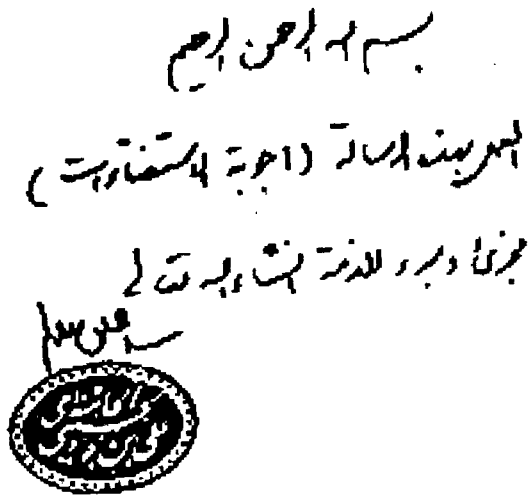 بسم الله الرحمن الرحيم
العمل بهذه الرسالة (أجوبة الاستفتاءات)
مجزئ ومبرء للذمة انشاء الله تعالى